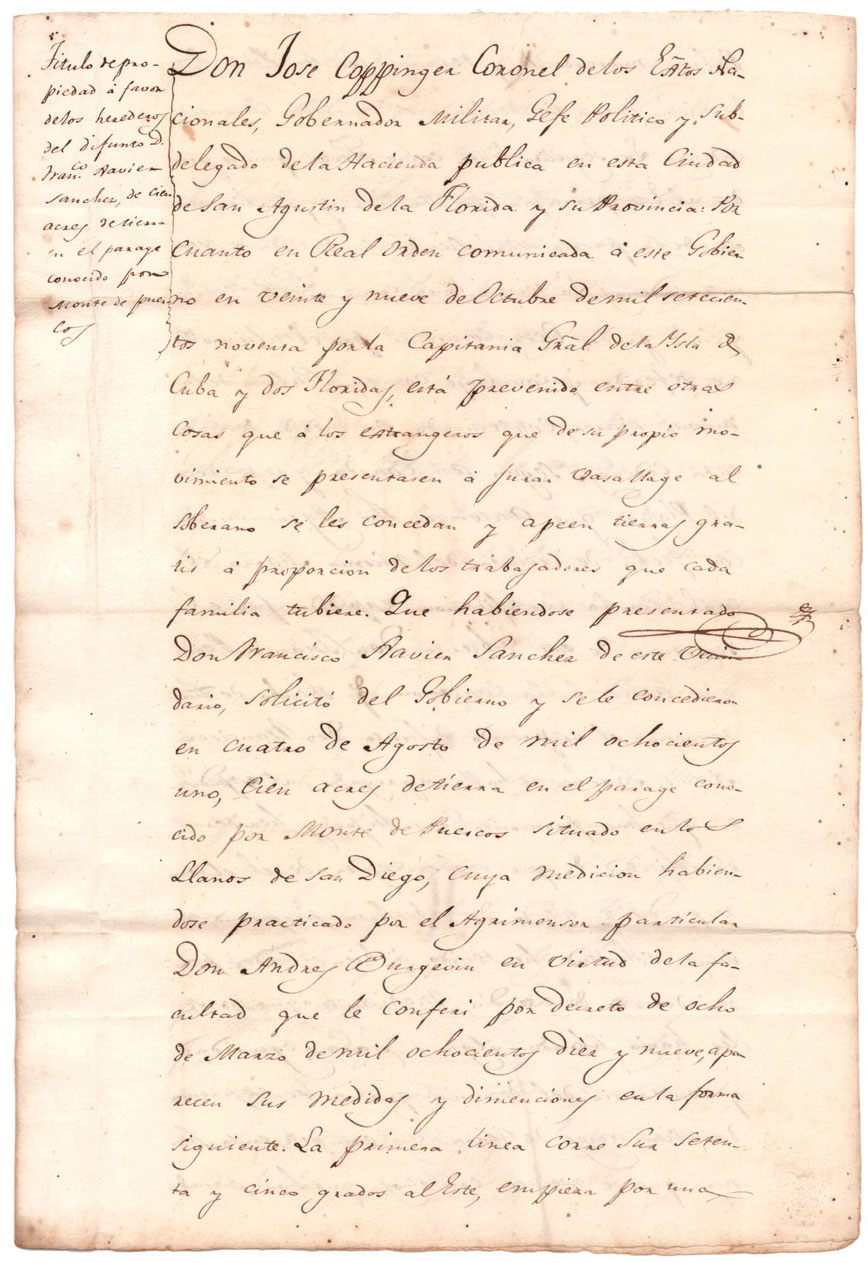 Titulo de pro-
piedad á favor
delos herederos
del difunto D.
Fran.co Xavier
Sanchez, de cien
acres de tierra
en el parage
conocido por
Monte de puer-
cos
Don Jose Coppinger Coronel delos Extos Na-
cionales, Gobernador Militar, Gefe Politico y Sub-
delegado dela Hacienda publica en esta Ciudad
de San Agustin dela Florida y su Provincia: Por
Cuanto en Real orden comunicada á este Gobier-
no en veinte y nueve de Octubre demil setecien-
tos noventa por la Capitania Gral dela Ysla de
Cuba y dos Floridas, está prevenido entre otras
Cosas que á los extrangeros que de su propio mo-
vimiento se presentaren á jurar Vasallage al
Soberano se les concedan y apeen tierras gra-
tis á proporcion delos trabajadores que cada
familia tubiere. Que habiendose presentado
Don Francisco Xavier Sanchez de este Vecin-
dario, solicitó del Gobierno y sele concedieron
en cuatro de Agosto de mil ochocientos
uno, Cien acres detierra en el parage cono-
cido por Monte de Puercos situado enlos
Llanos de San Diego, cuya medicion habien-
dose practicado por el Agrimensor particular
Don Andres Burgevin en virtud dela fa-
cultad que le conferi por decreto de ocho
de Marzo demil ochocientos diez y nueve, apa-
recen sus medidas y dimenciones enla forma
siguiente. La primera linea corre Sur seten-
ta y cinco grados al Este, empieza por una